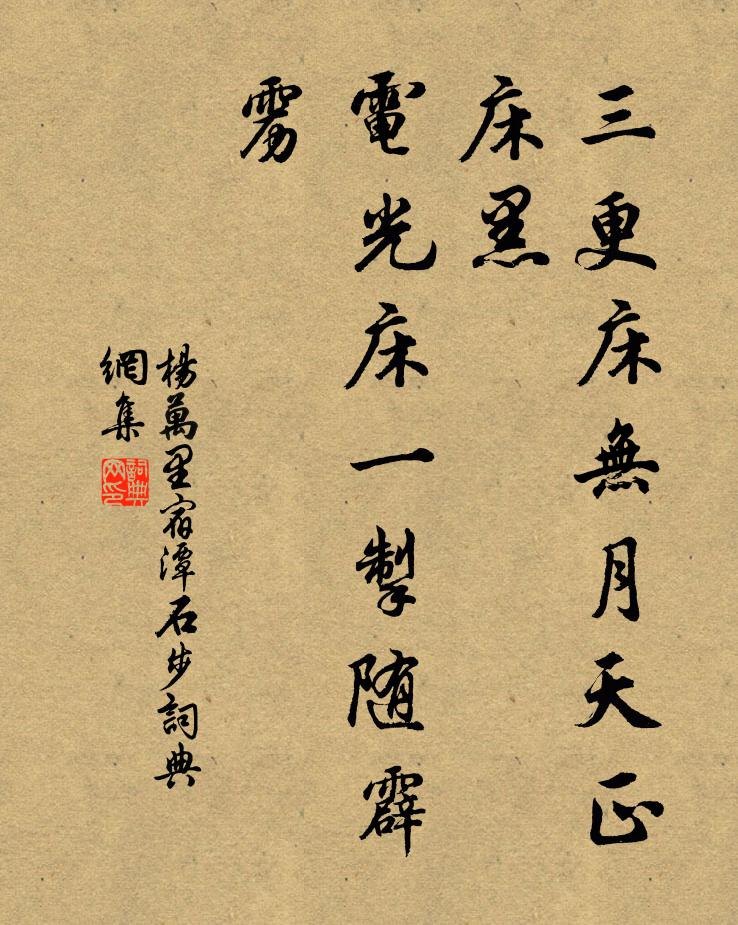 三更床無月天正
床黑
電光床一掣随霹
雳
楊萬里宿潭石步詞典
網集
詞典
网印